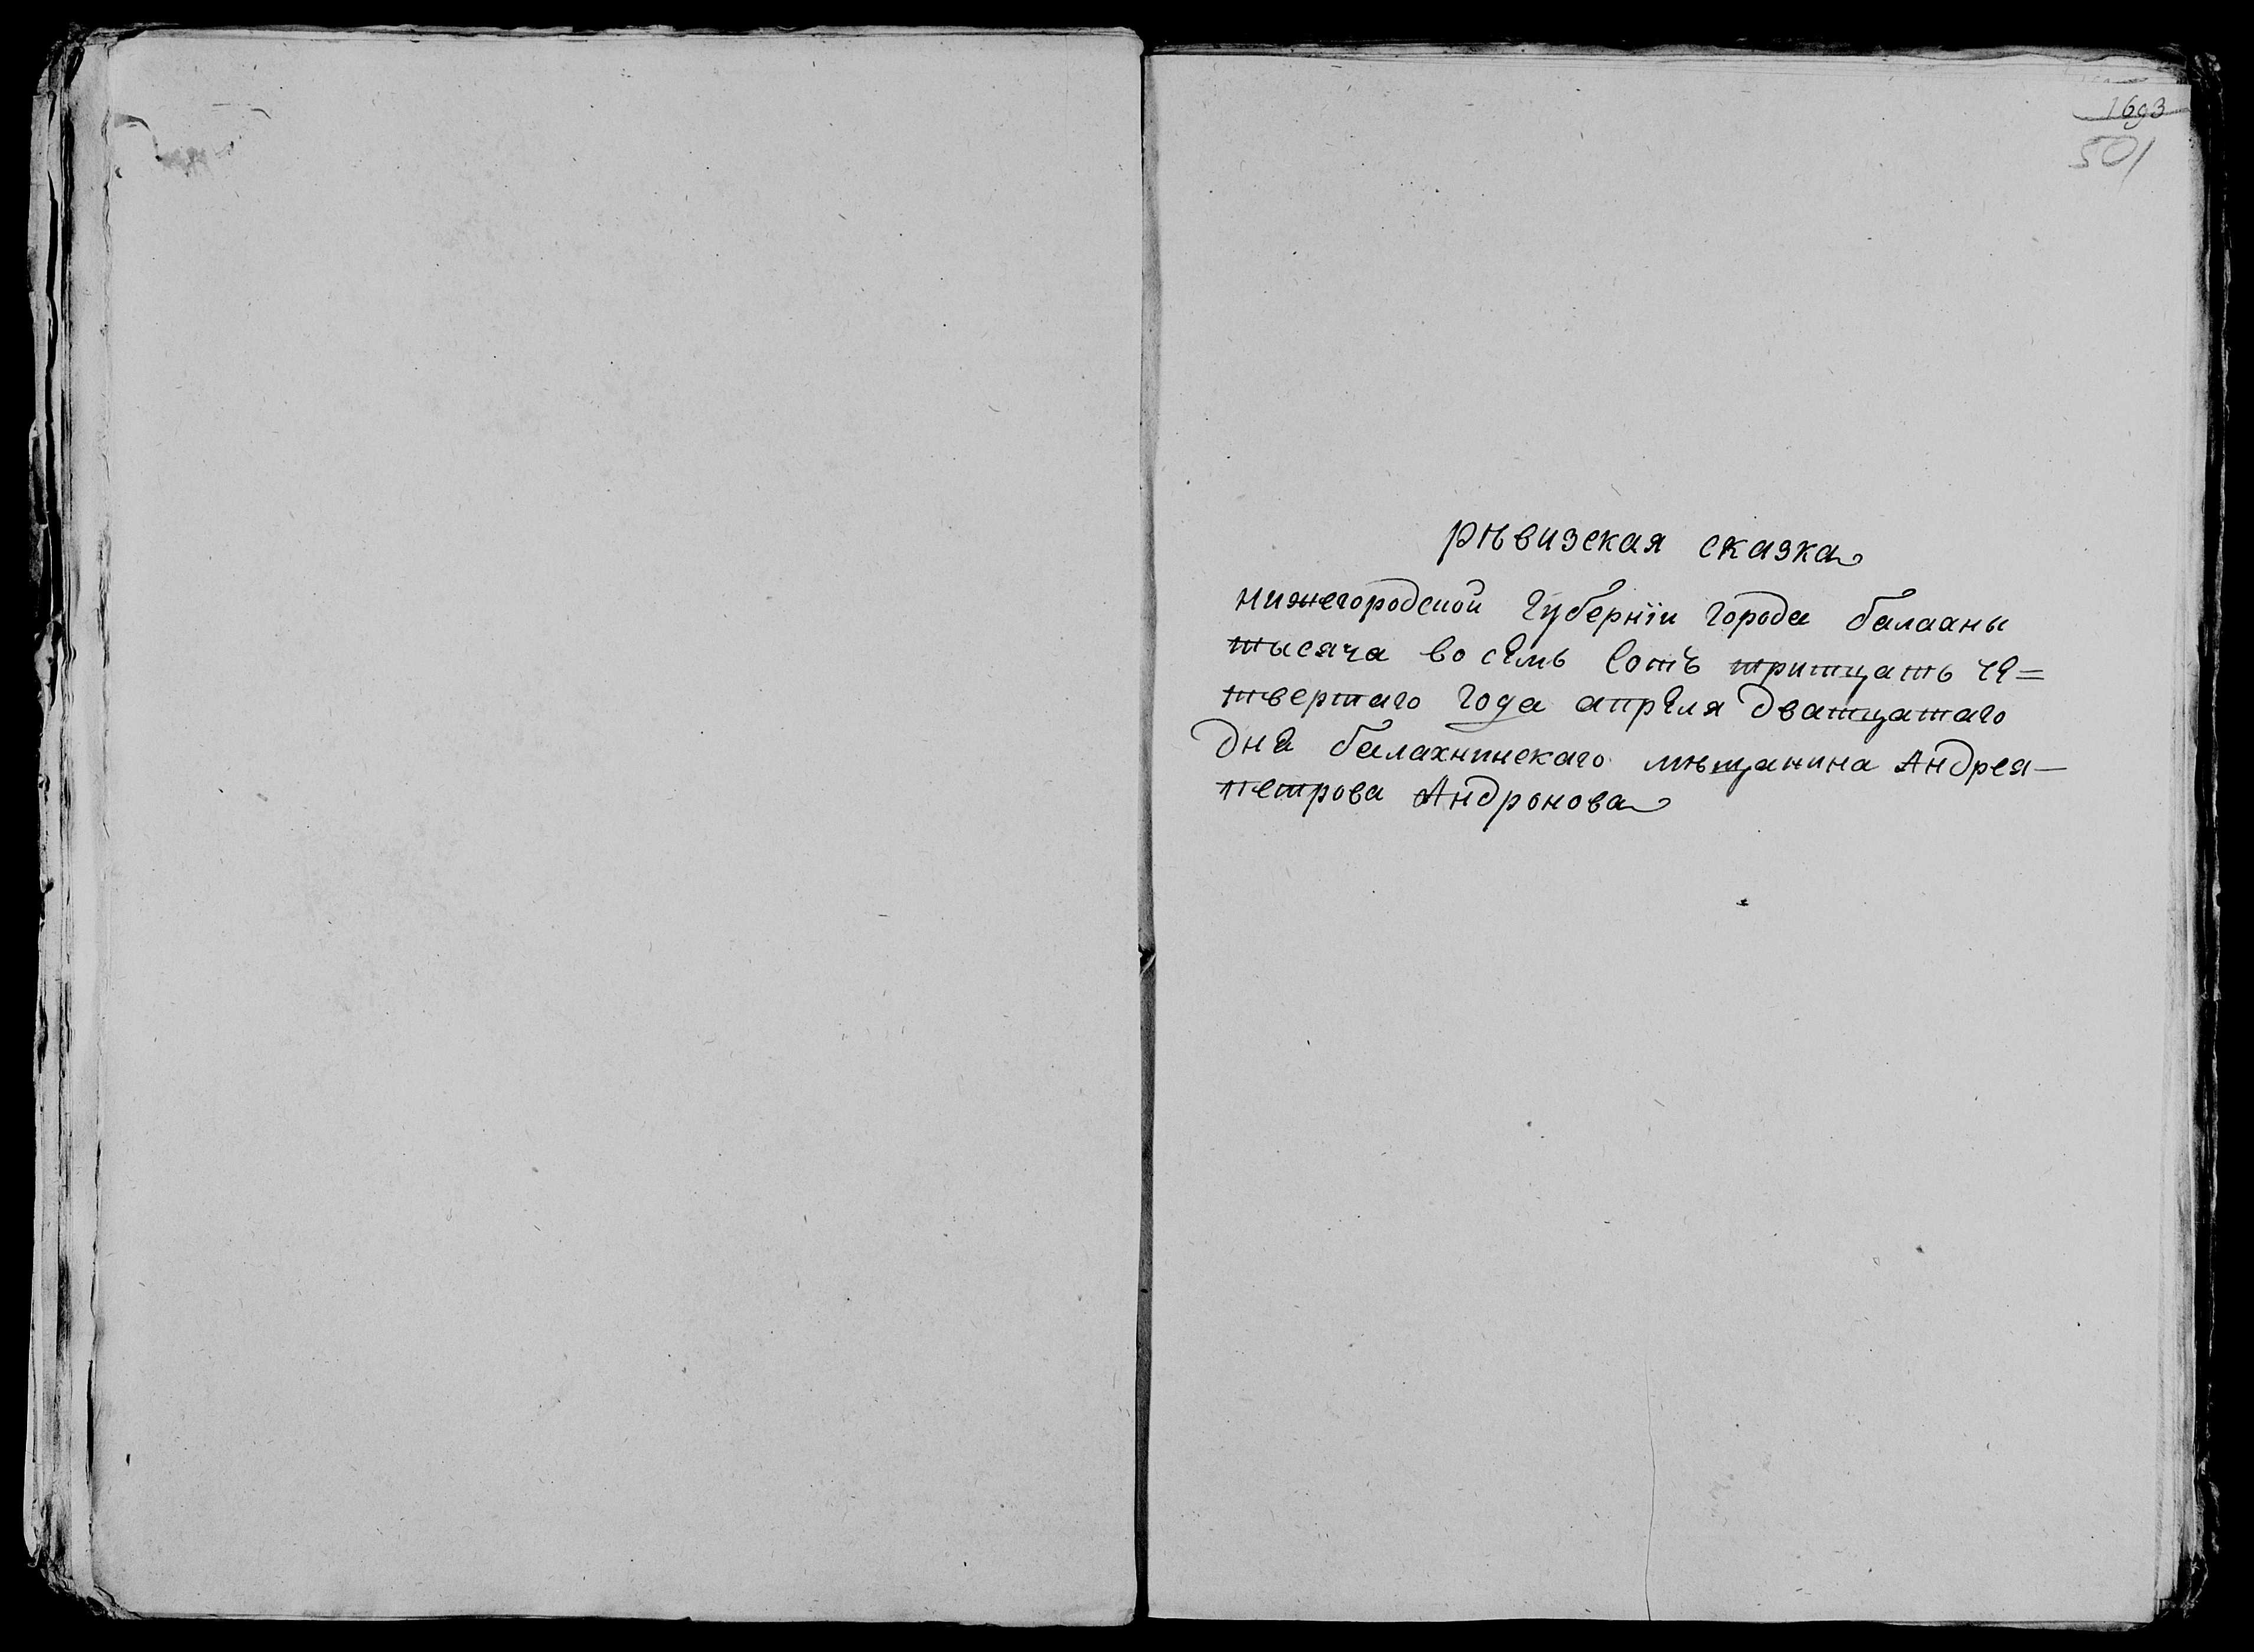 1693
501
рѣвизская сказка
нижегородской губернїи города балааны
тысяча во семь сотъ тритцать че=
твертаго года апреля дватцатаго
дня балахнинскаго мѣщанина Андрея—
петрова Андронова